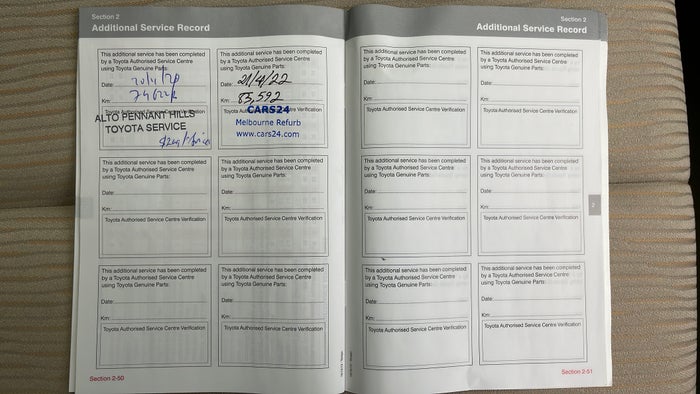 Section 2
Additional Service Record
This additional service has been completed
by a Toyota Authorised Service Centre
using Toyota Genuine Parts:
Date:
Km:
Toyota Authorised Service Centre Verification
ALTO PENNANT HILLS
TOYOTA SERVICE
This additional service has been completed
by a Toyota Authorised Service Centre
using Toyota Genuine Parts:
Date: 21/4/22
Km: 83,592
Toyota Authorised Service Centre Verification
CARS24
Melbourne Refurb
www.cars24.com
This additional service has been completed
by a Toyota Authorised Service Centre
using Toyota Genuine Parts:
Date:
Km:
Toyota Authorised Service Centre Verification
This additional service has been completed
by a Toyota Authorised Service Centre
using Toyota Genuine Parts:
Date:
Km:
Toyota Authorised Service Centre Verification
This additional service has been completed
by a Toyota Authorised Service Centre
using Toyota Genuine Parts:
Date:
Km:
Toyota Authorised Service Centre Verification
This additional service has been completed
by a Toyota Authorised Service Centre
using Toyota Genuine Parts:
Date:
Km:
Toyota Authorised Service Centre Verification
Section 2-50
Section 2
Additional Service Record
This additional service has been completed
by a Toyota Authorised Service Centre
using Toyota Genuine Parts:
Date:
Km:
Toyota Authorised Service Centre Verification
This additional service has been completed
by a Toyota Authorised Service Centre
using Toyota Genuine Parts:
Date:
Km:
Toyota Authorised Service Centre Verification
This additional service has been completed
by a Toyota Authorised Service Centre
using Toyota Genuine Parts:
Date:
Km:
Toyota Authorised Service Centre Verification
This additional service has been completed
by a Toyota Authorised Service Centre
using Toyota Genuine Parts:
Date:
Km:
Toyota Authorised Service Centre Verification
2
This additional service has been completed
by a Toyota Authorised Service Centre
using Toyota Genuine Parts:
Date:
Km:
Toyota Authorised Service Centre Verification
This additional service has been completed
by a Toyota Authorised Service Centre
using Toyota Genuine Parts:
Date:
Km:
Toyota Authorised Service Centre Verification
Section 2-51